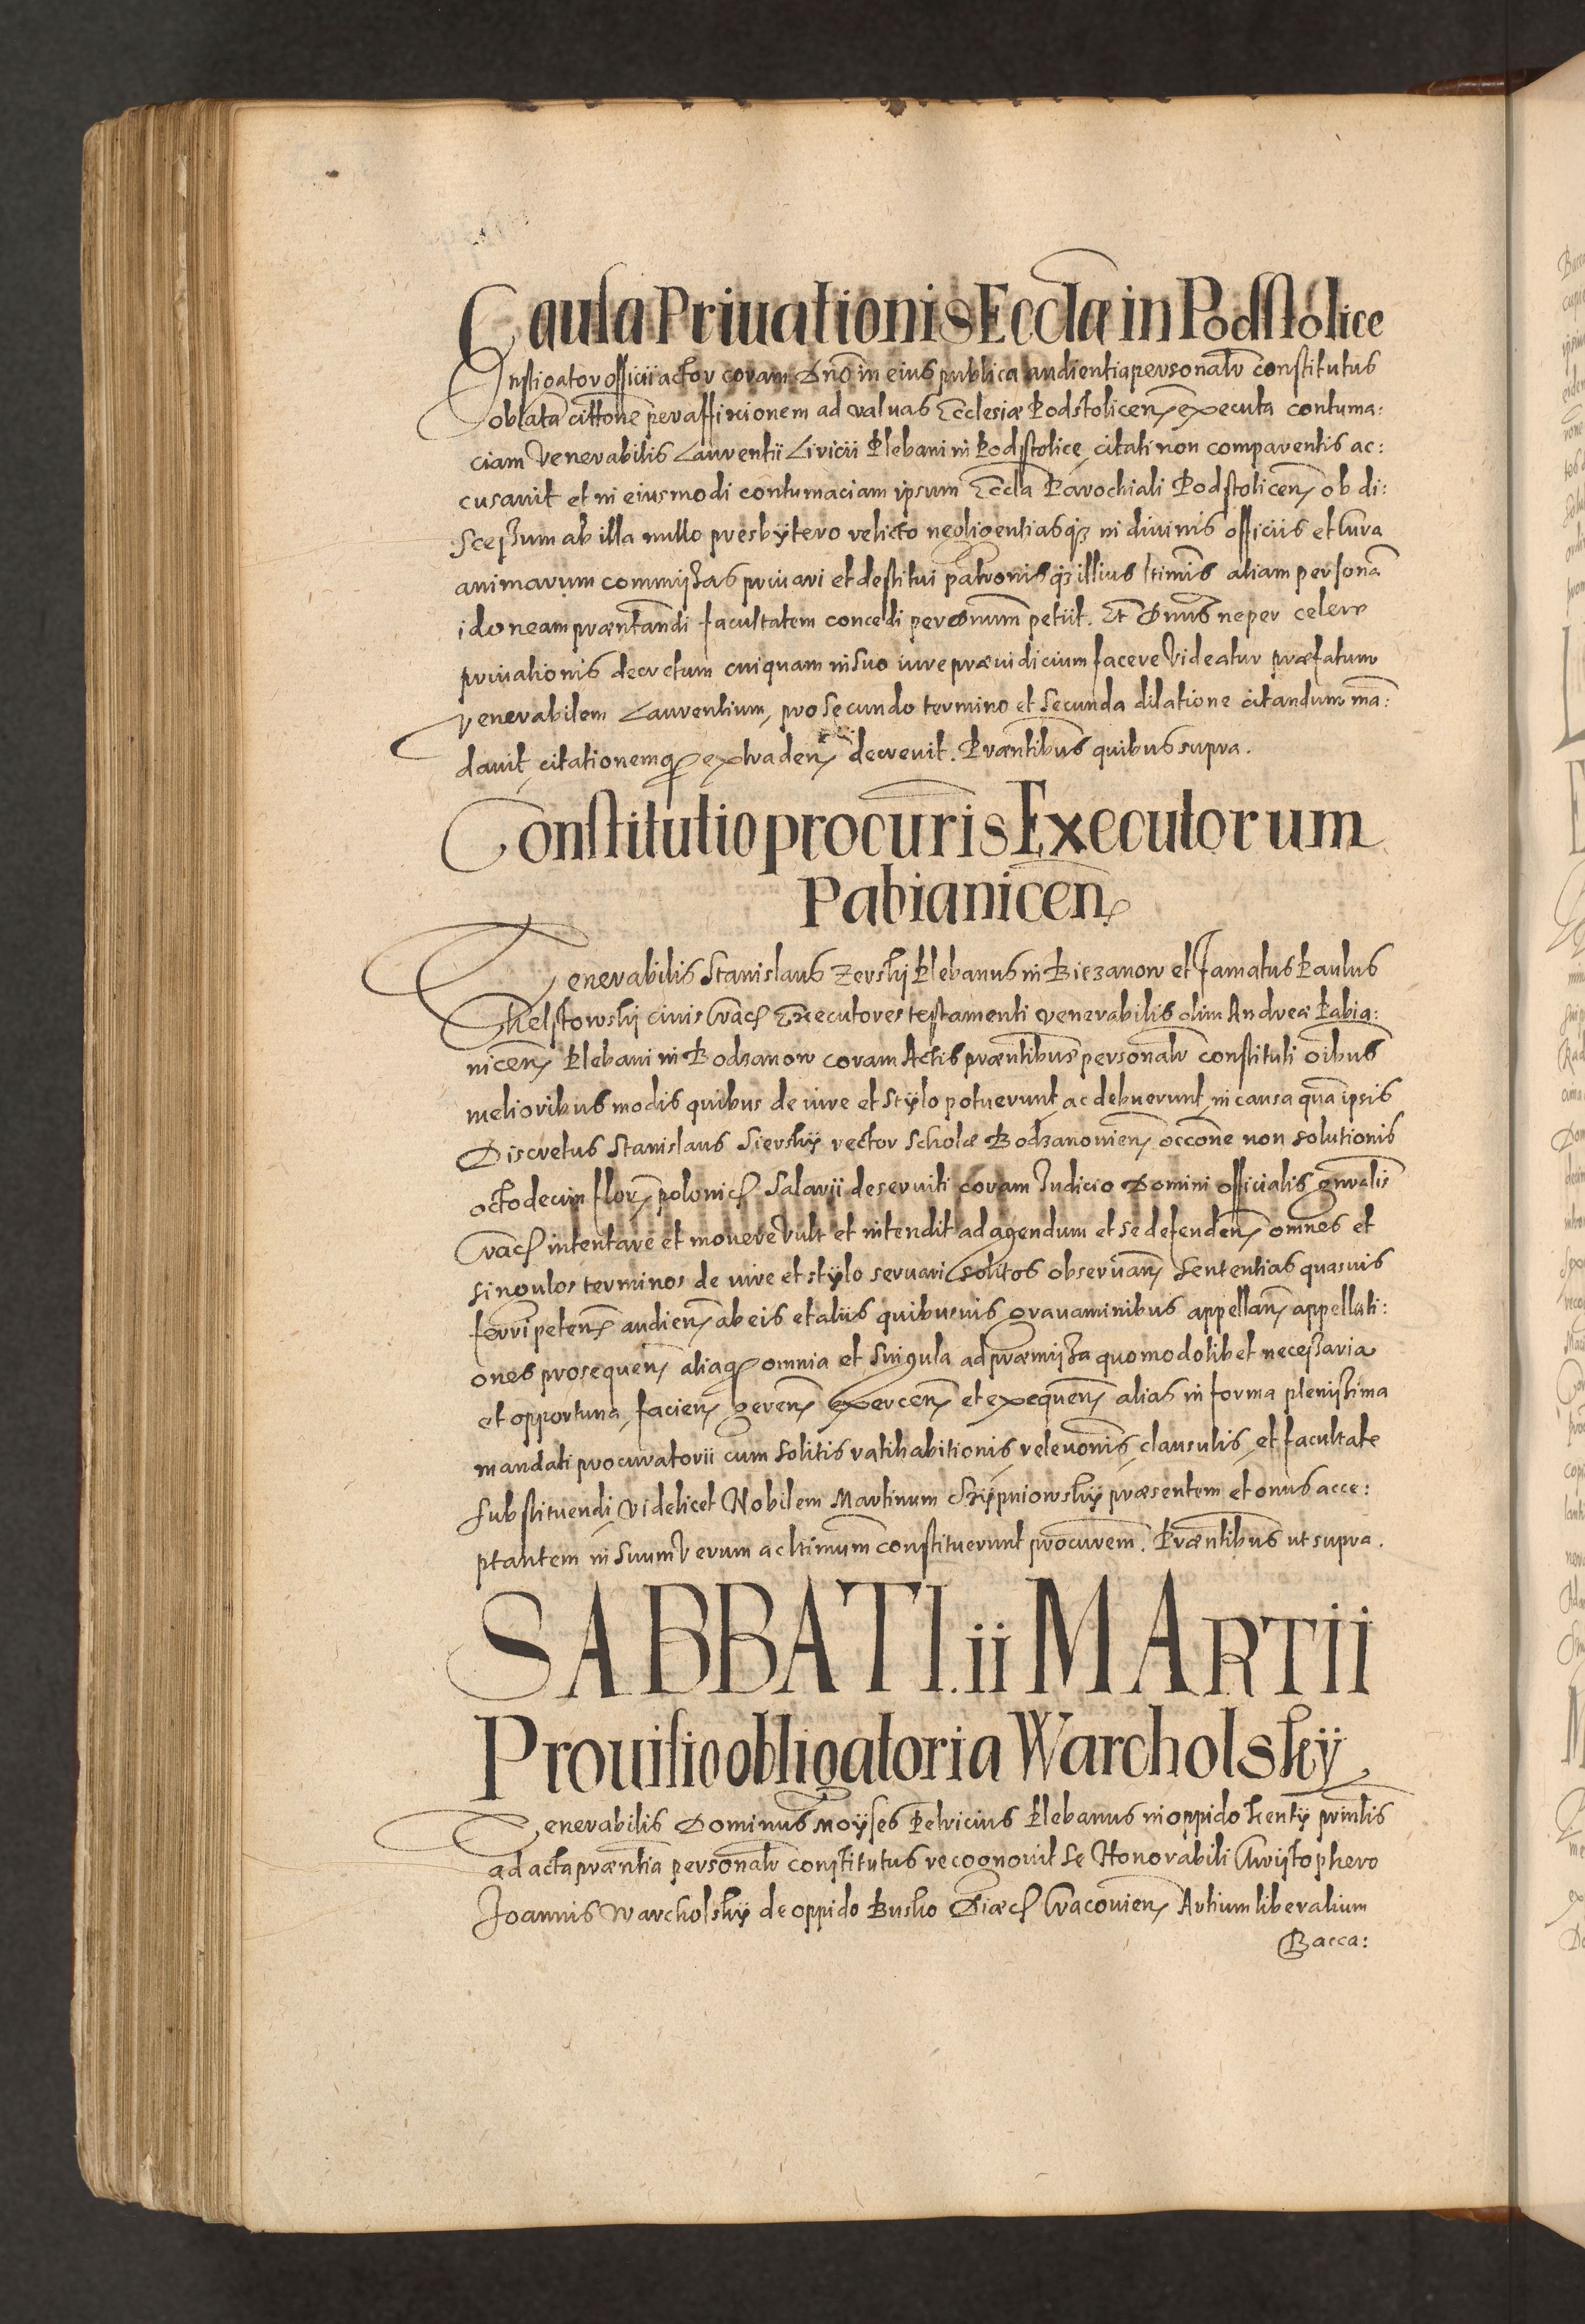 Causa Priuationis Eccłæ in Podstolice
Instigator officii actor coram Dnō in eius publica audientia personalr̄ constitutus
oblata citt̄one per affixionem ad valuas Ecclesiæ Podstolicen̄ executa contuma:
ciam Venerabilis Laurentii Livicii Plebani in Podstolice, citati non comparentis ac:
cusauit et in eiusmodi contumaciam ipsum Eccłā Parochiali Podstolicen̄ ob di:
scessum ab illa nullo presbÿtero relicto negligentiasq3 in diuinis officiis et Cura
animarum commissas priuari et destitui patronisq3 illius ltimīs aliam personā
idoneam præntandi facultatem concedi per Dnum petiit. Et Dnus ne per celere
priuationis decretum cuiquam in suo iure præiudicium facere videatur præfatum
venerabilem Laurentium, pro secundo termino et secunda dilatione citandum man̄:
dauit, citationemq3 extraden̄ decreuit. Præntibus quibus supra.
Constitutio procuris̄ Executorum
Pabianicen̄
Venerabilis Stanislaus Zerskÿ Plebanus in Biezanow et famatus Paulus
Chelstowskÿ ciuis Crac̄ Executores testamenti venerabilis olim Andreæ Pabia:
nicen̄ Plebani in Bodzanow coram Actis præntibus personalr̄ constituti oībus
melioribus modis quibus de iure et stÿlo potuerunt, ac debuerunt, in causa quā ipsis
Discretus Stanislaus Sierskÿ rector scholæ Bodzanouien̄ occōne non solutionis
octodecim flor̄ polonic̄ Salarii deseruiti coram Iudicio Domini officialis gnralis
Crac̄ intentare et mouere vult et intendit ad agendum et se defenden̄ omnes et
singulos terminos de iure et stÿlo seruari solitos obseruan̄ Sententias quasuis
ferri peten̄ audien̄ ab eis et aliis quibusuis grauaminibus appellan̄ appellati:
ones prosequen̄ aliaq3 omnia et singula ad præmissa quomodolibet necessaria
et opportuna, facien̄ geren̄ exercen̄ et exequen̄ alias in forma plenissima
mandati procuratorii cum solitis ratihabitionis, releuonis, clausulis, et facultate
substituendi, videlicet Nobilem Martinum Skÿpniowskÿ præsentem et onus acce:
ptantem in suum verum ac ltimum constituerunt procurem̄. Præntibus ut supra.
SABBATI. ii MARTII
Prouisio obligatoria Warcholskÿ
Venerabilis Dominus Moÿses Petricius Plebanus in oppido Kentÿ prinlis
ad acta præntia personalr̄ constitutus recognouit se Honorabili Christophero
Joannis Warcholskÿ de oppido Busko Diæc̄ Cracouien̄ Artium liberalium
Bacca: